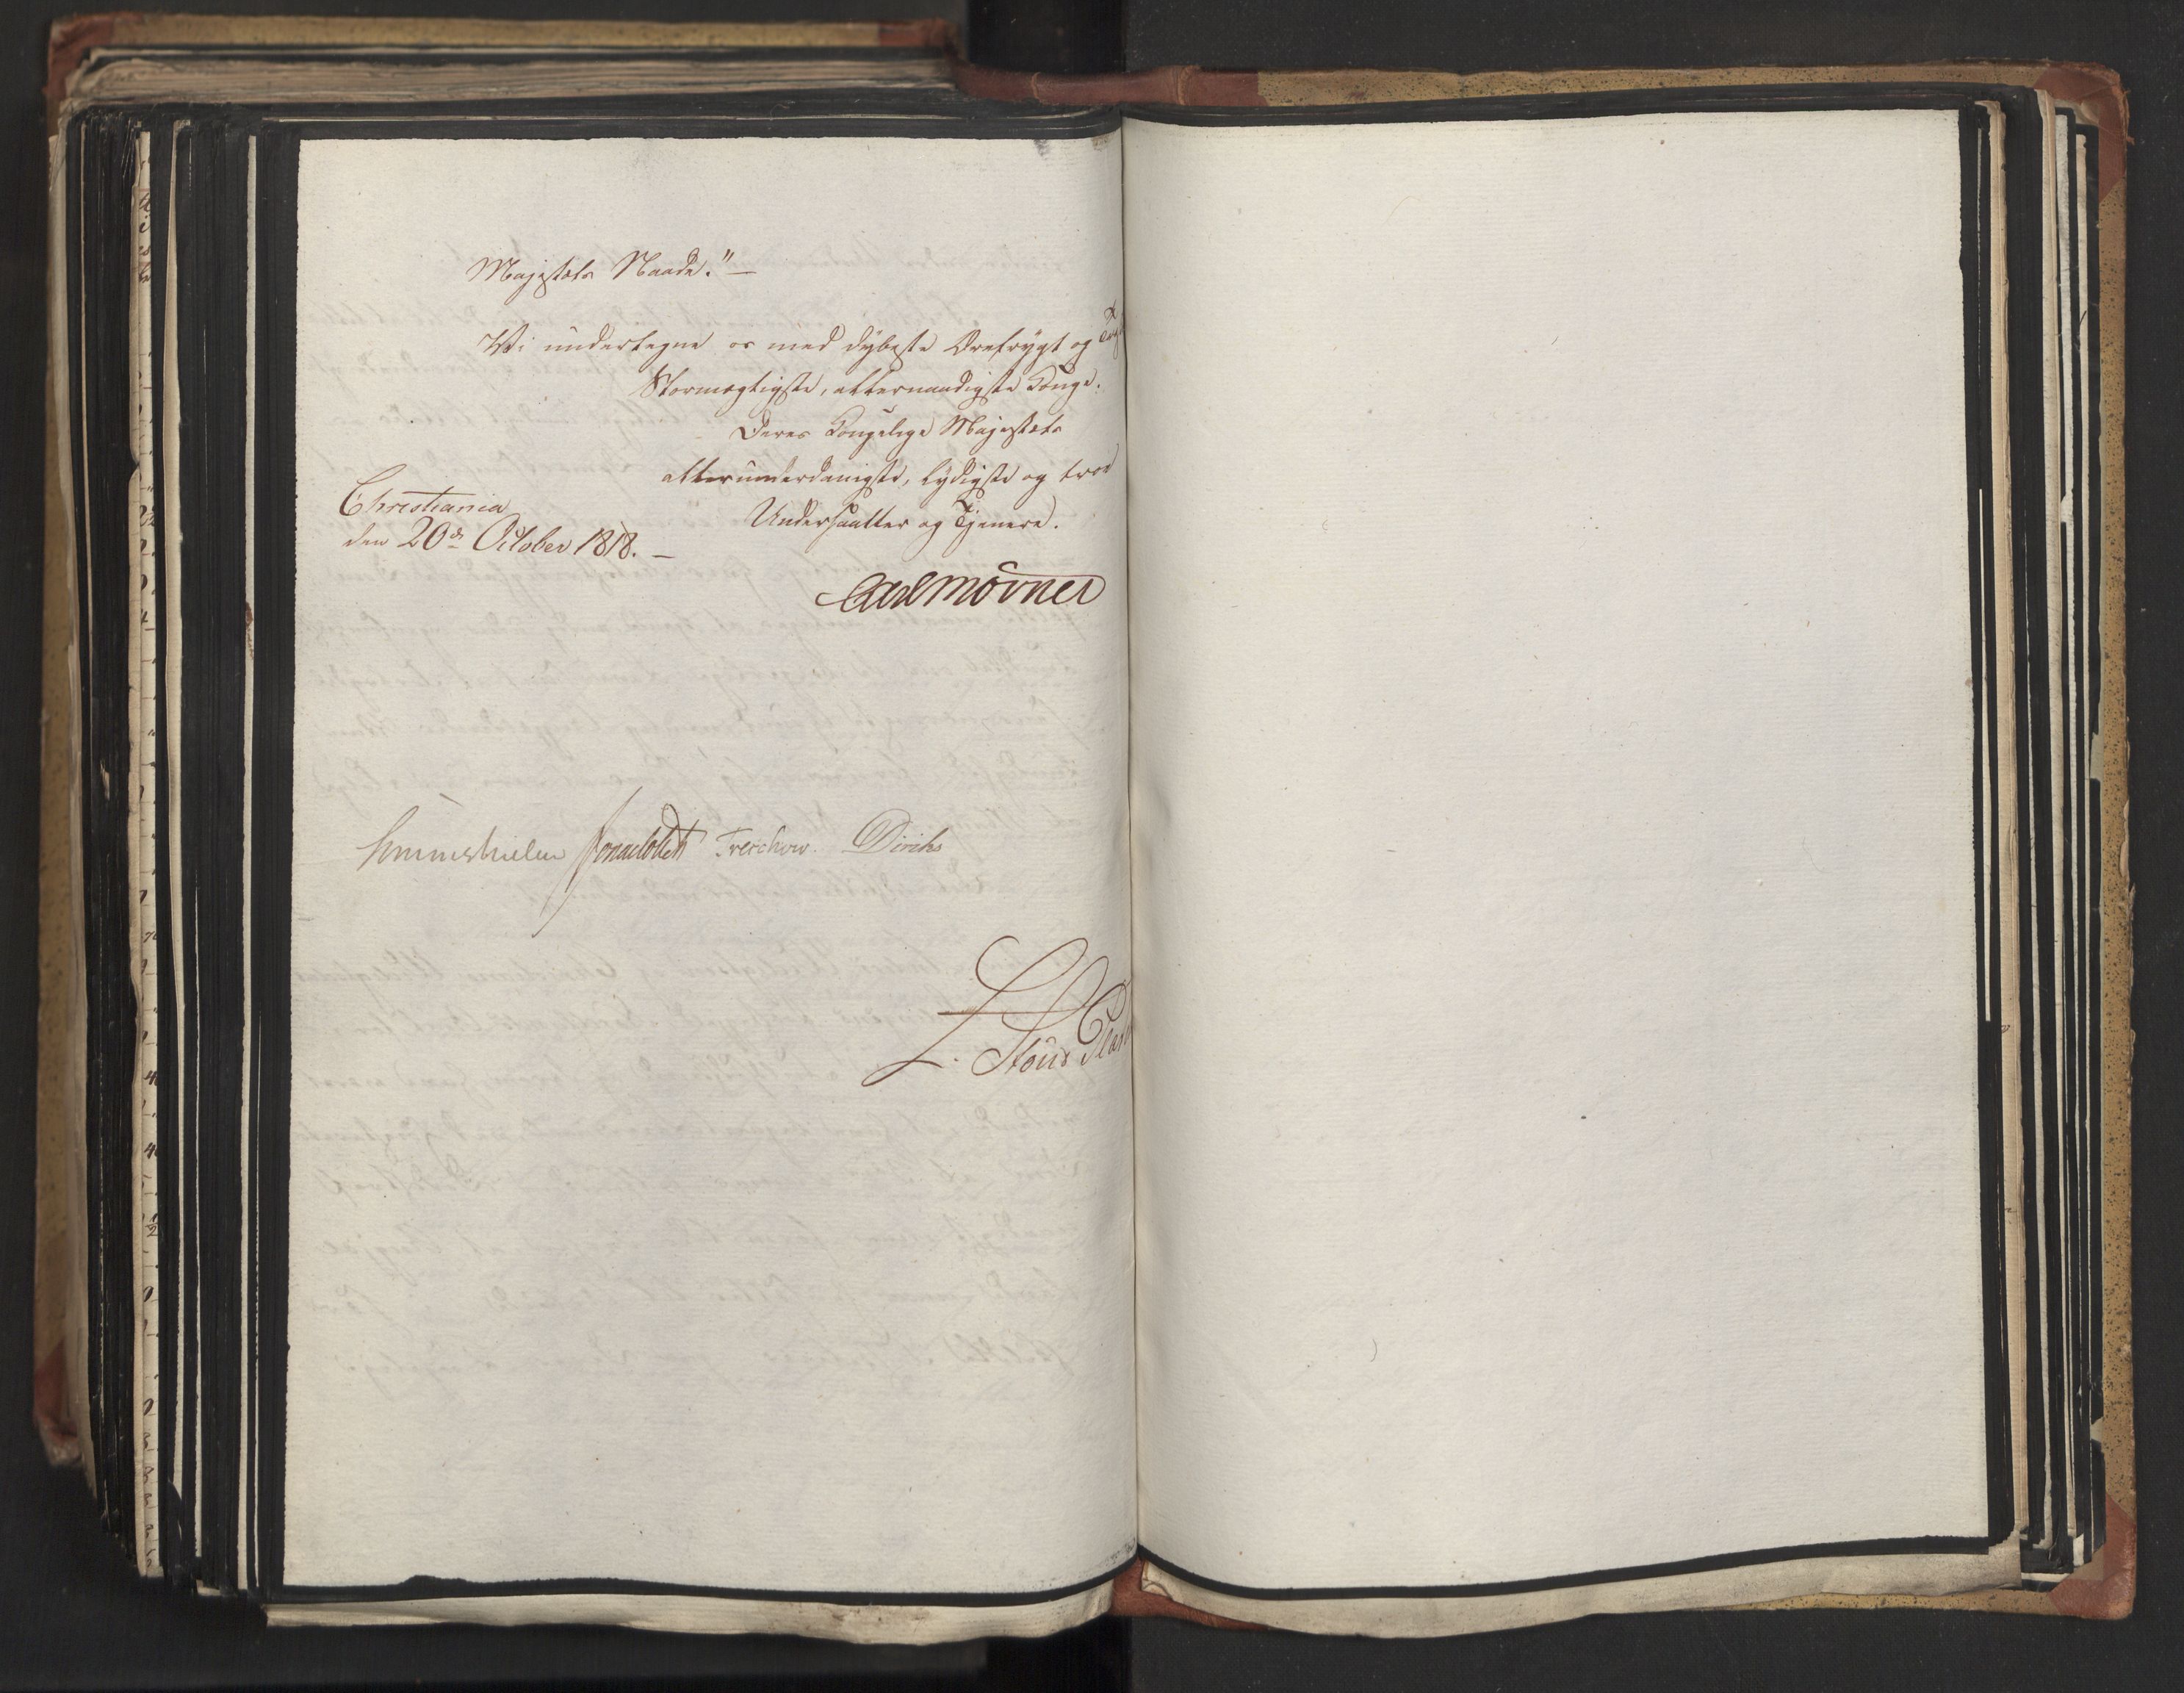 Majestæts Naade."—
Vi undertegne os med dybeste Ærefrygt og
Stormægtigste, allernaadigste Konge!
Deres Kongelige Majestæts
allerunderdanigste, lydigste og troe
Undersaatter og Tjenere.
Christiania
den 20de October 1818. —
Carl Mörner
Sommerhielm Treschow. Diriks
L. Stoud Plat